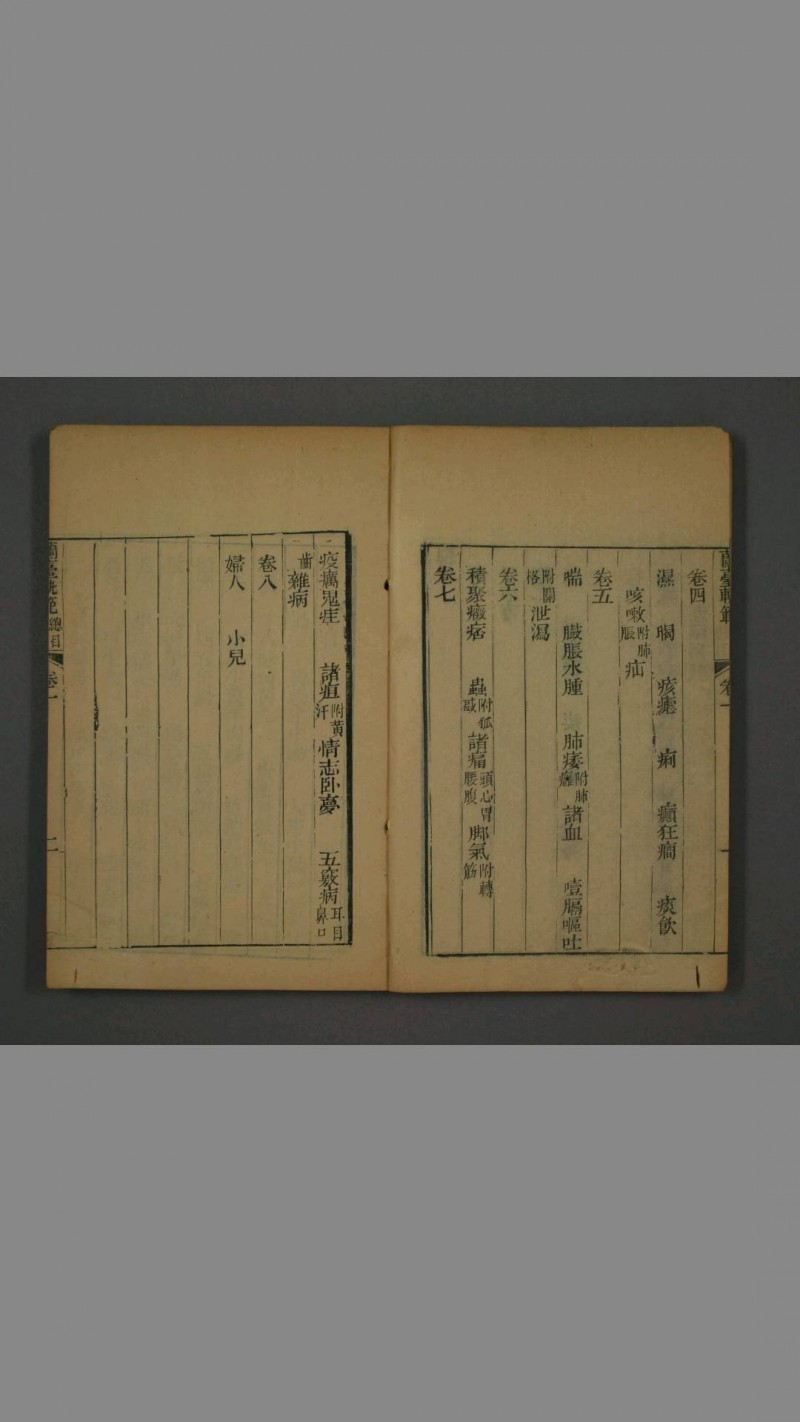 卷四
濕 暍 痎瘧 痢 癲狂癇 痰飲
咳嗽附肺脹 疝
卷五
喘 臌脹水腫 肺痿附肺癰 諸血 噎膈嘔吐
附關格 泄瀉
卷六
積聚癥痞 蟲附狐惑 諸痛頭心胃腰腹 脚氣附轉筋
卷七
疫癘鬼疰 諸疸附黃汗 情志卧夢 五竅病耳目鼻口
齒 雜病
卷八
婦人 小兒
蘭臺軌範總目 卷一